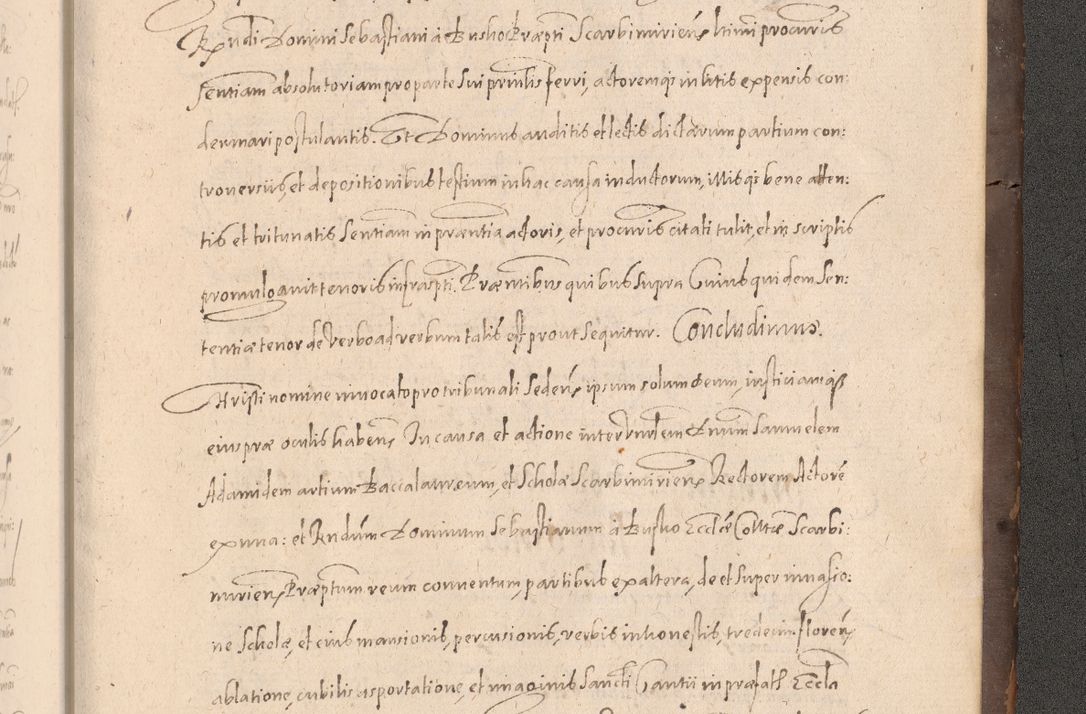 Rndi Domini Sebastiani à Busko Præpti Scarbimirień ltimi procuris
sentiam absolutoriam pro parte sui prinlis ferri, actoremq₃ in litis expensis con:
demnari postulantis. Et Dominus auditis et lectis dictarum partium con:
troversiis, et depositionibus testium in hac causa inductorum, illisq₃ bene atten:
tis et trituratis Sentiam in præntia actoris, et procuris citati tulit, et in scriptis
promulgavit tenoris infrascpti. Præntibus quibus supra Cuius quidem Sen:
tentiæ tenor de verbo ad verbum talis est prout sequitur. Concludimus.
Christi nomine invocato pro tribunali sedeńs ipsum solum Deum, iusticiamq₃
eius præ oculis habeńs In causa et actione inter vnlem Dnum Samuelem
Adamidem artium Baccalaureum, et Scholæ Scarbimirień Rectorem Actorē
ex una: et Rndum Dominum Sebastianum à Busko Ecclæ Collatæ Scarbi:
mirień Præptum reum conventum, partibus ex altera, de et super invasio:
ne Scholæ, et eius mansionis, percussionis, verbis inhonestis, tredecim floreń,
ablatione, cubilis asportatione, et imaginis Sancti Cantii in præfata Eccla